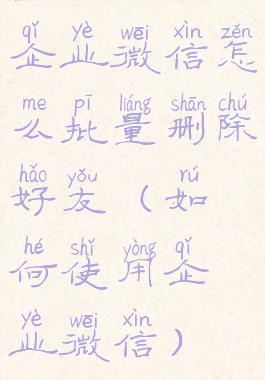 qǐ yè wēi xìn zěn
企业微信怎
me pī liáng shān chú
么批量删除
hǎo yǒu rú
好友（如
hé shǐ yòng qǐ
何使用企
yè wēi xìn
业微信）